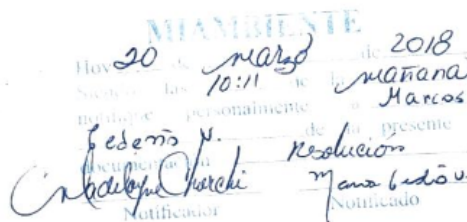 MIAMBIENTE
Hoy 20 de marzo de 2018
Siendo las 10:11 de la mañana
notifique personalmente a Marcos
Cedeño V. de la presente
documentación Resolución
Notificador Notificado